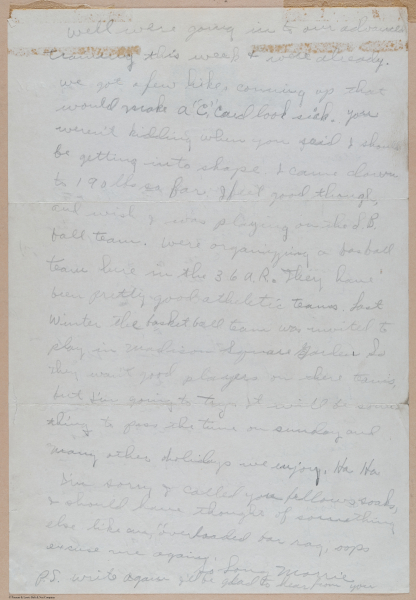 well we're going into our advanced
training this week & note already.
we got a few hikes coming up that
would make a "C" card look sick. you
weren't kidding when you said I should
be getting into shape I came down
to 190 lbs so far. I feel good though,
and wish I was playing on the I.B.
ball team. we're organizing a baseball
team here in the 36 A.R. They have
been pretty good athletic teams. last
winter the basketball team was invited to
play in Madison Square Garden So
they want good players on there teams,
but I'm going to try. It will be some
thing to pass the time on sunday and
many other holidays we enjoy. Ha Ha
I'm sorry I called you fellows soaks,
I should have thought of something
else like any "overloaded bar rag, oops
excuse me again.
So Long Morrie
P.S. write again I'll be glad to hear from you